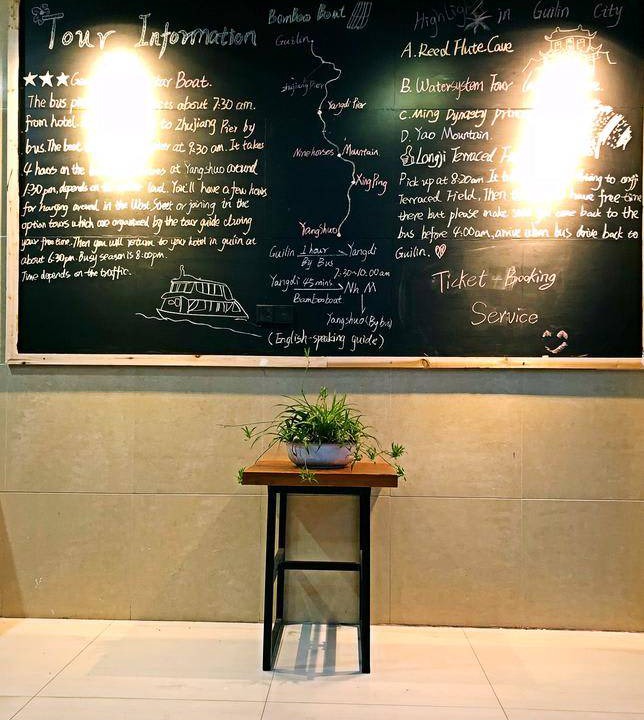 Tour Information
★★★ Boat.
The bus about 7:30 am.
from hotel. to Zhujiang Pier by
bus. The at 9:30 am. It takes
4 hours on the to Yangshuo around
1:30 pm, depends on the level. You'll have a few hours
for hanging around in the West Street or joining in the
option tours which are organized by the tour guide during
your free time. Then you will return to your hotel in guilin at
about 6:30pm. Busy season is 8:00pm.
Time depends on the traffic.
Bamboo Boat
Guilin
Zhujiang Pier
Yangdi Pier
Ninehorses Mountain
XingPing
Yangshuo
Guilin 1 hour Yangdi
By Bus
7:30-10:00am
Yangdi 45 mins N M
Bamboo boat
Yangshuo (By bus)
(English-speaking guide)
Highlight in Guilin City
A. Reed Flute Cave
B. Watersystem Tour
C. Ming Dynasty
D. Yao Mountain.
Longji Terraced
Pick up at 8:20am. It to
Terraced Field. Then have free time
there but please make come back to the
bus before 4:00am, arrive when bus drive back to
Guilin.
Ticket - Booking
Service